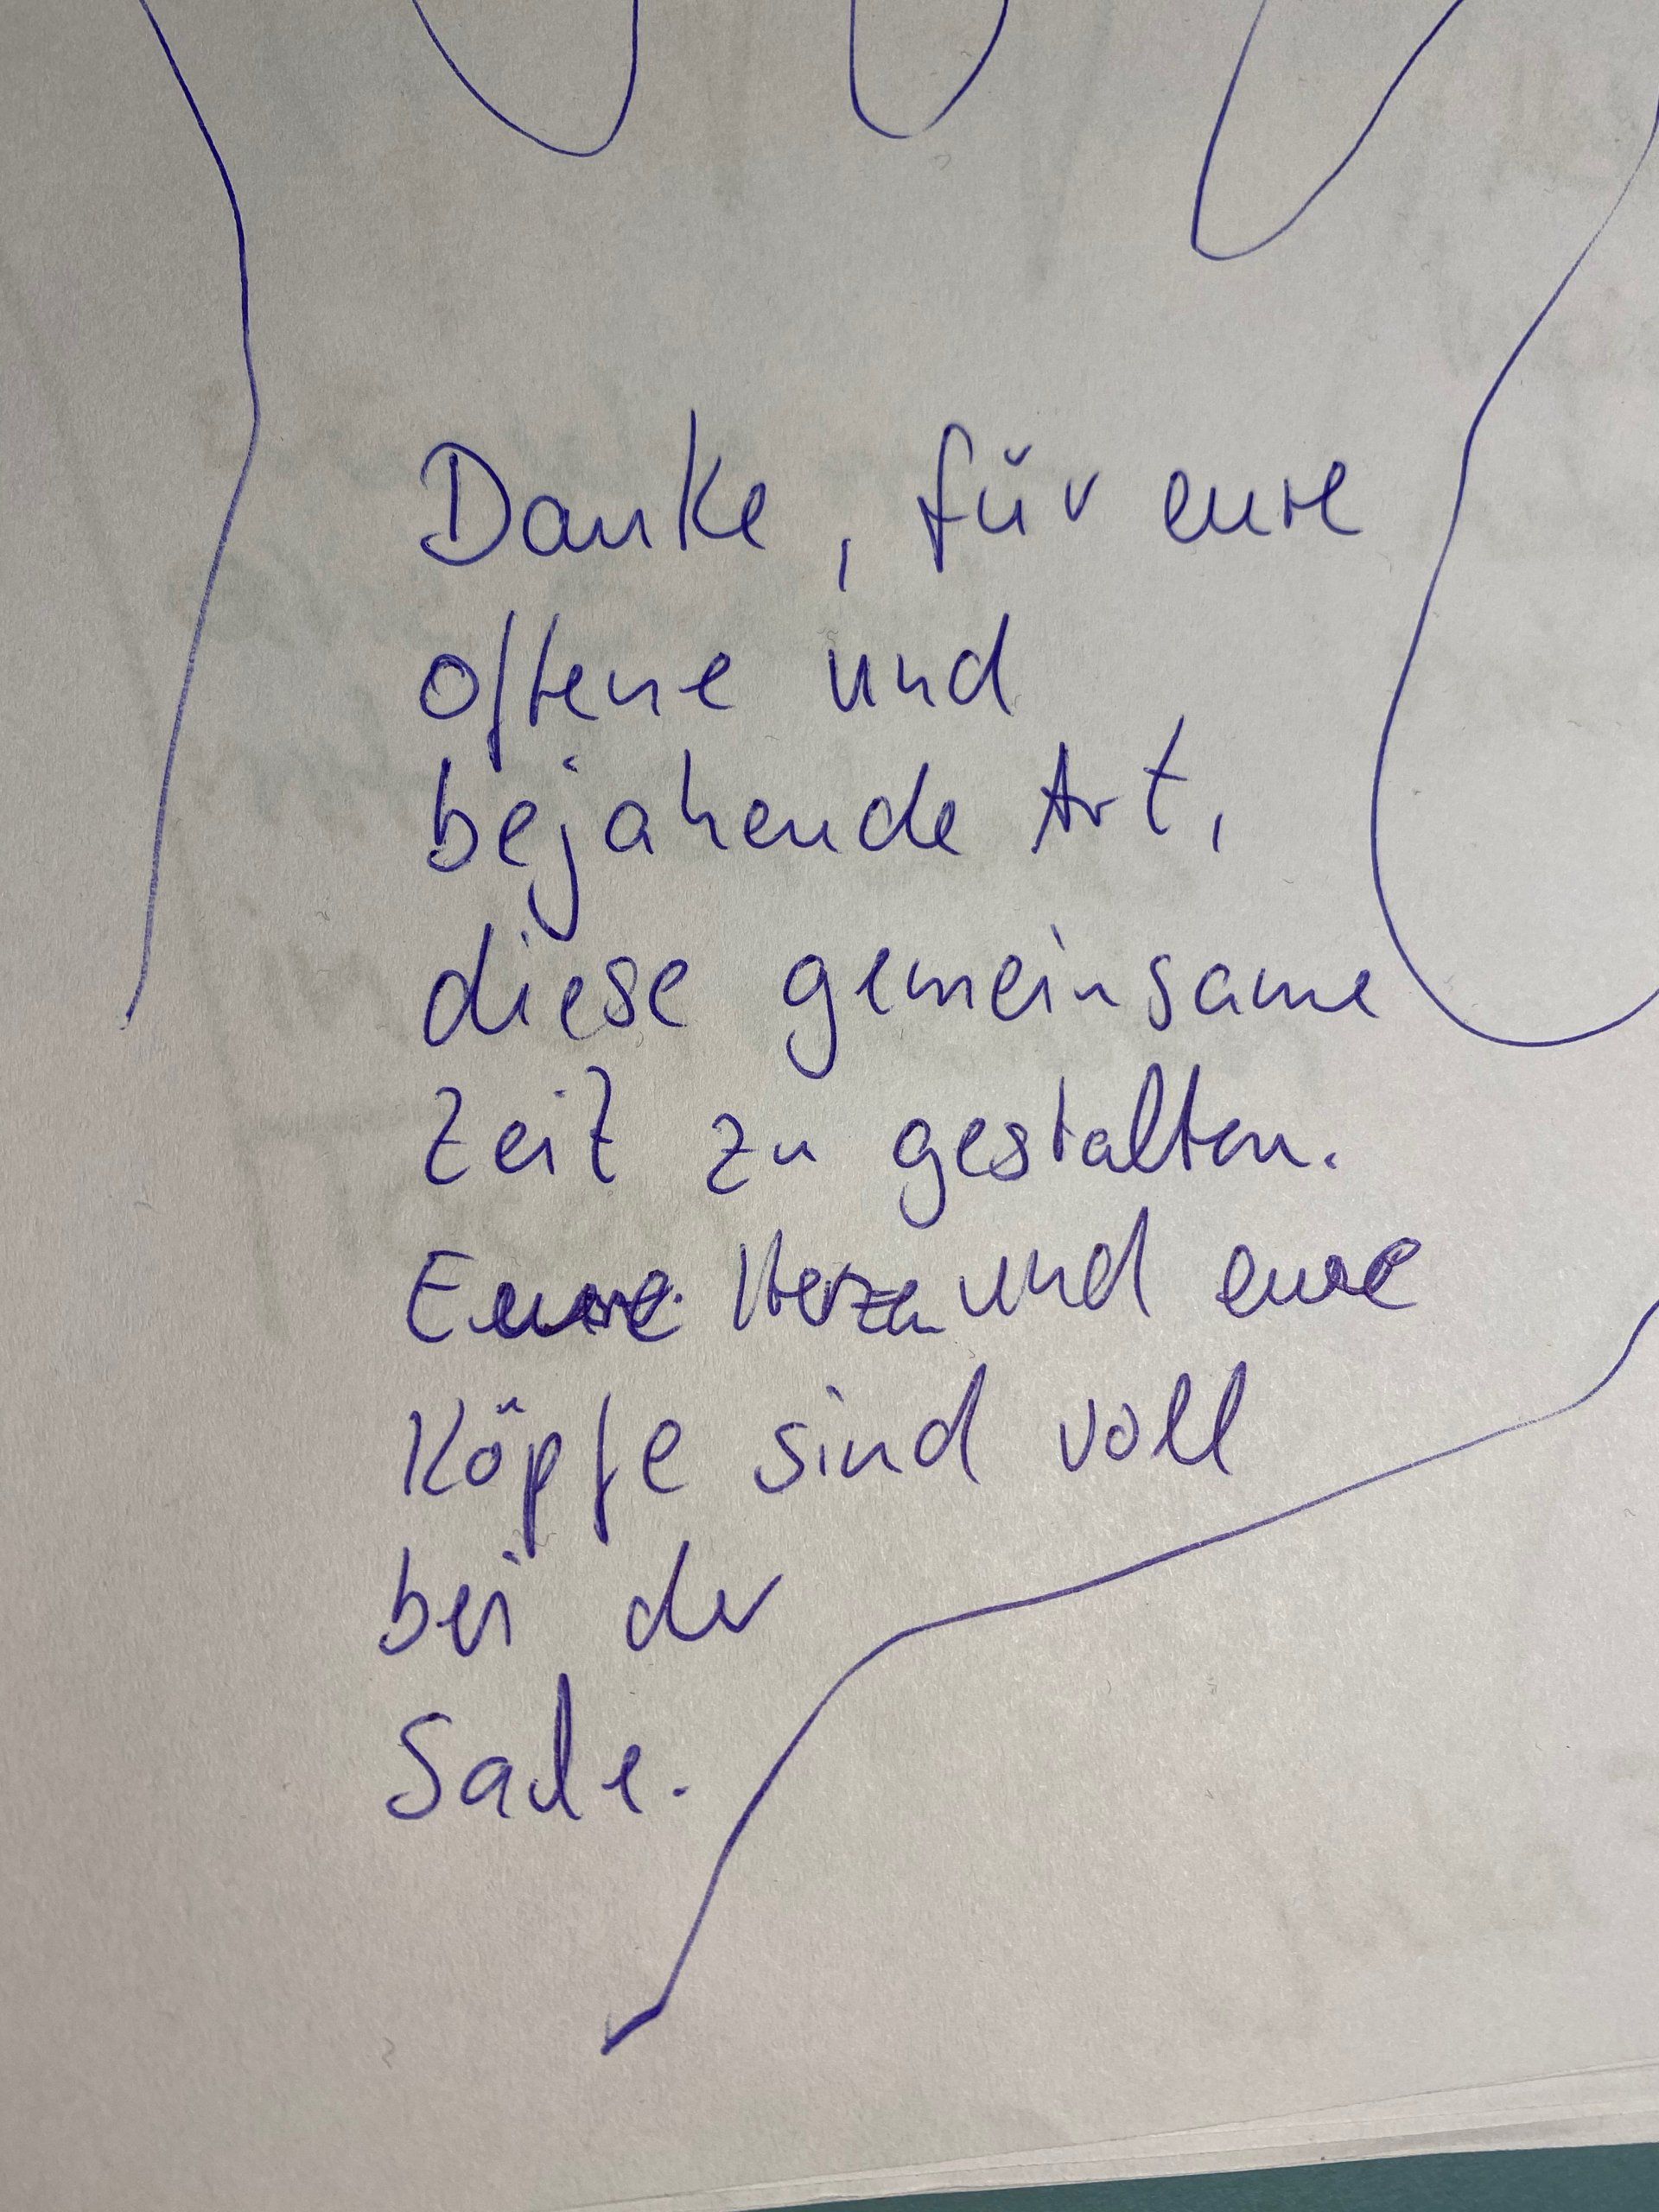 Danke, für eure
offene und
bejahende Art,
diese gemeinsame
Zeit zu gestalten.
Eure Herzen und eure
Köpfe sind voll
bei der
Sache.